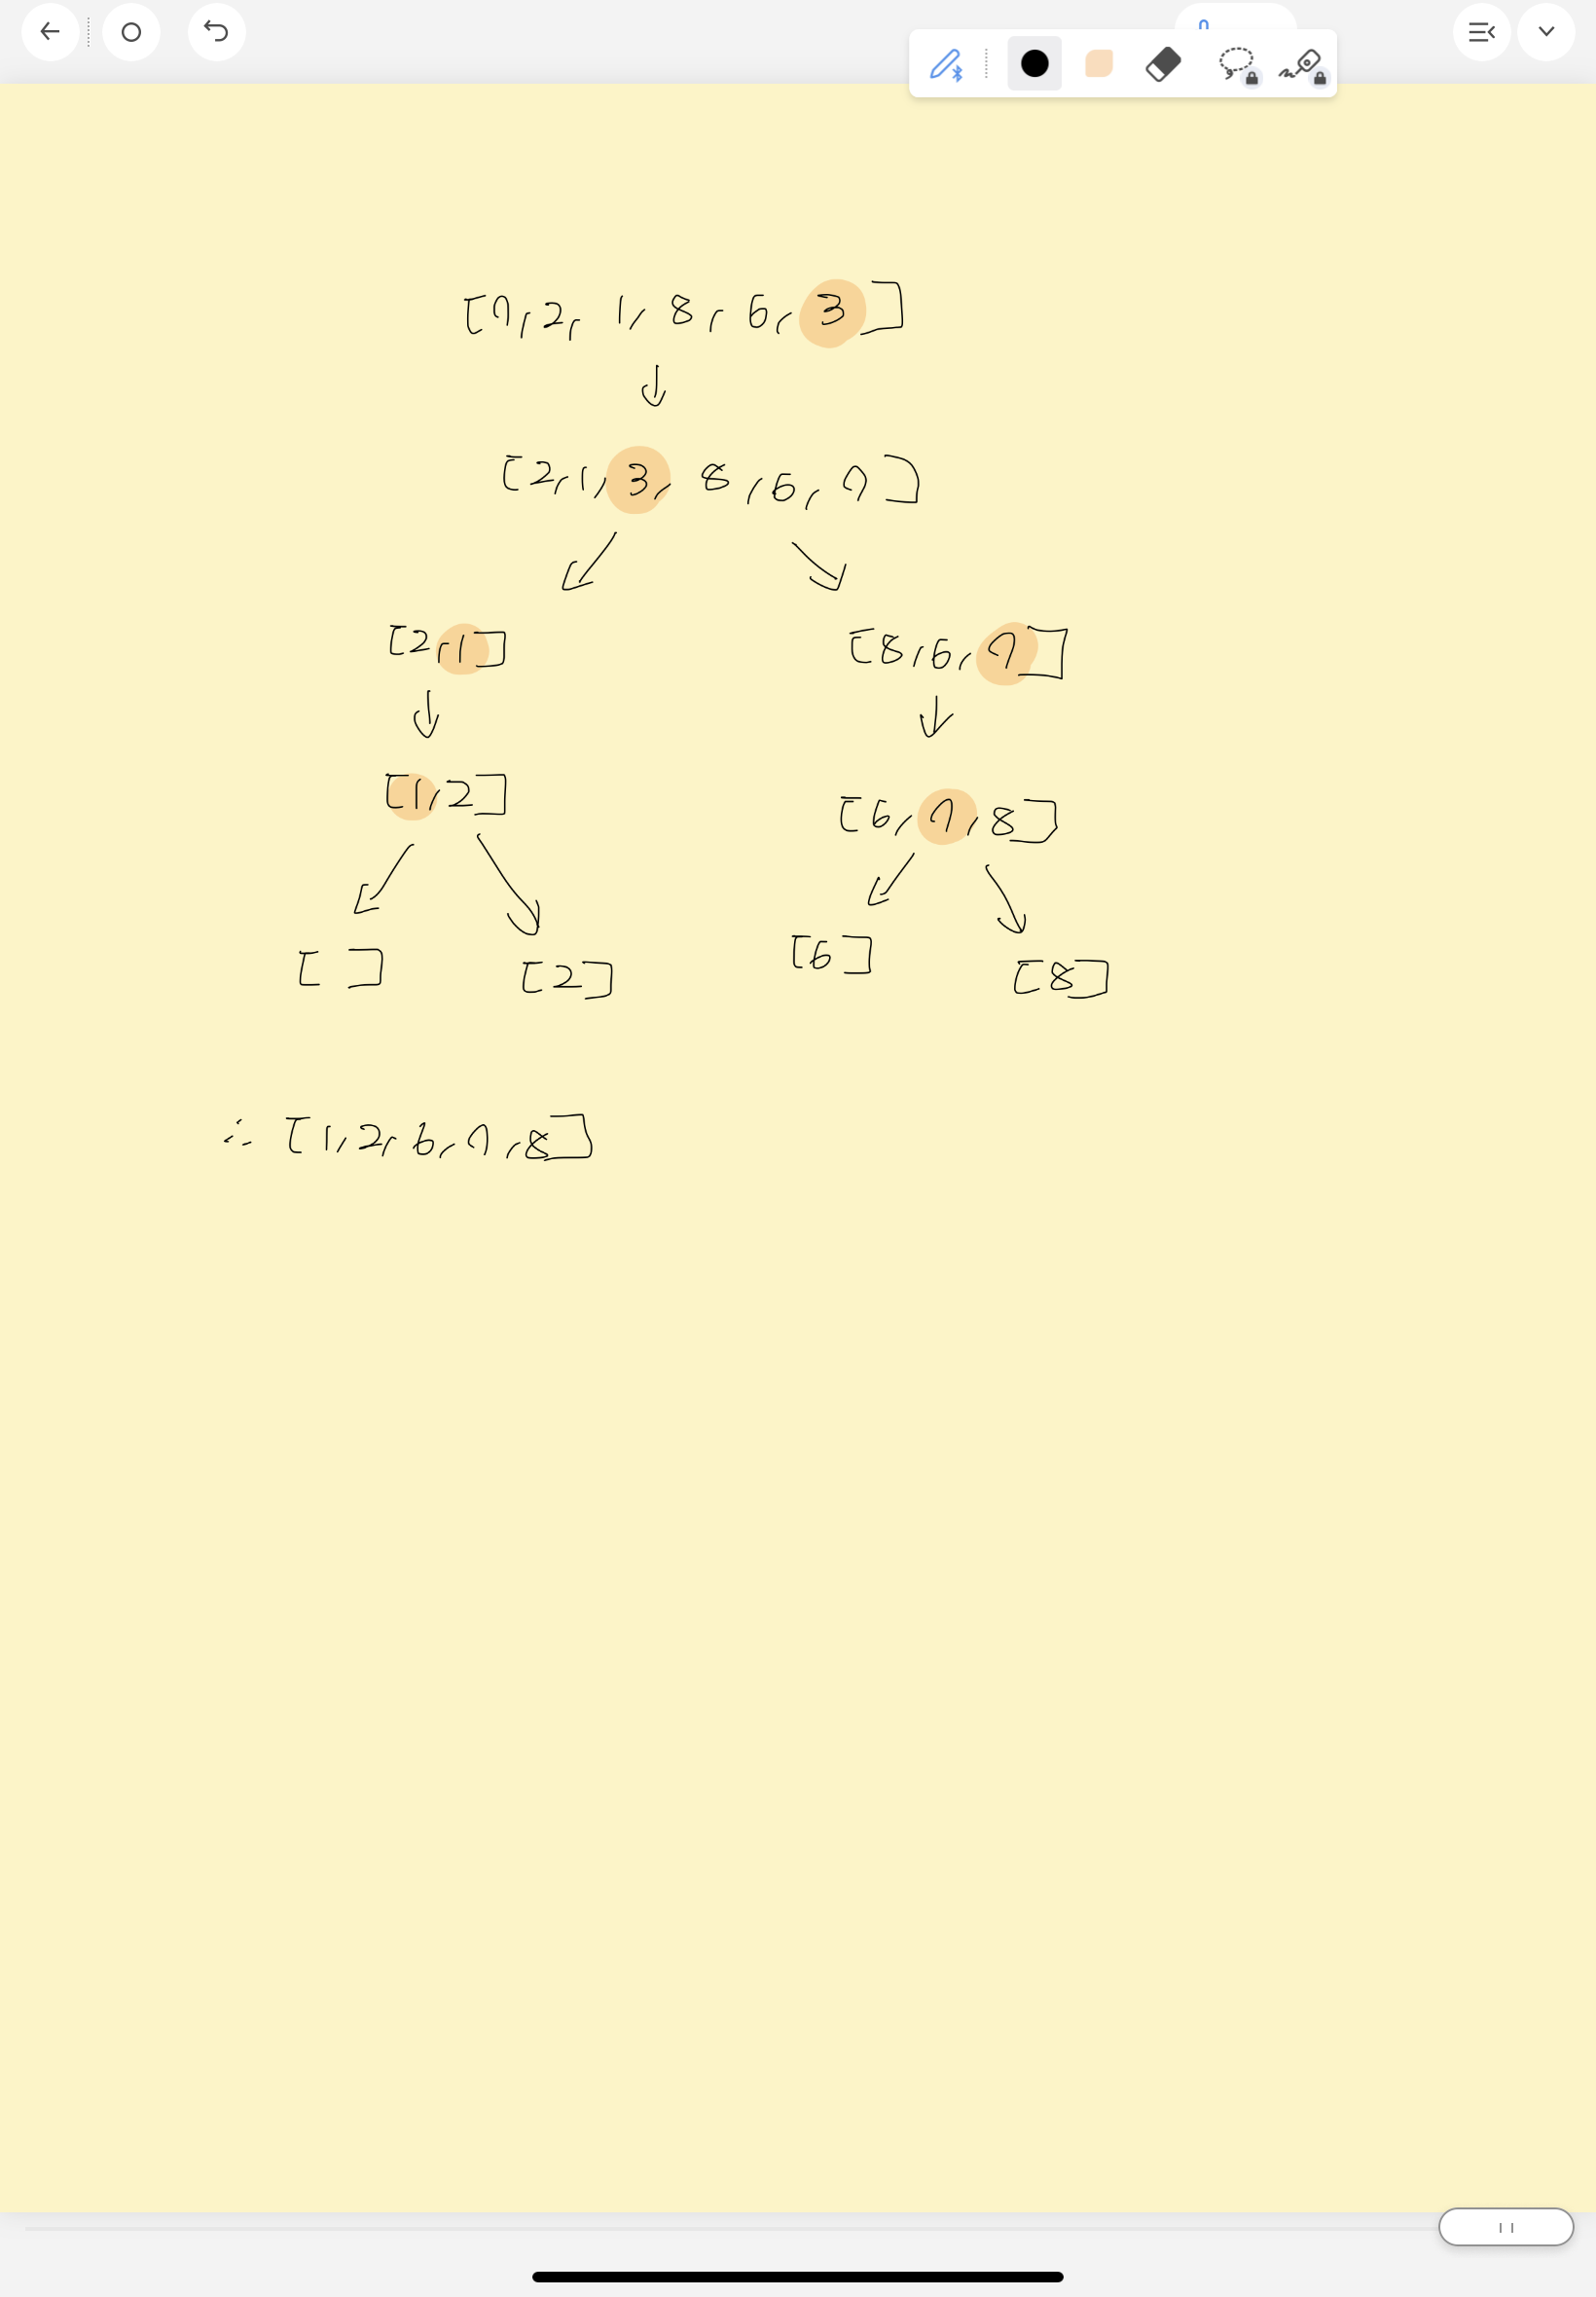 [7, 2, 1, 8, 6, 3]
↓
[2, 1, 3, 8, 6, 7]
[2, 1] [8, 6, 7]
↓ ↓
[1, 2] [6, 7, 8]
[ ] [2] [6] [8]
∴ [1, 2, 6, 7, 8]